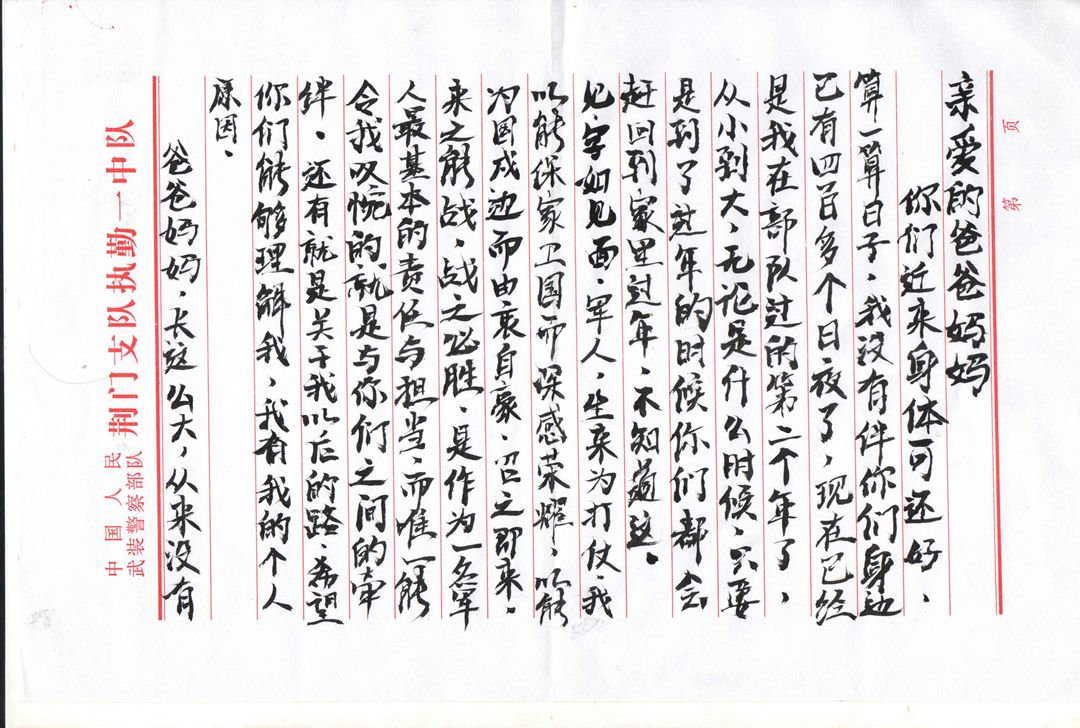 第 页
亲爱的爸爸妈妈
你们近来身体可还好、
算一算日子、我没有伴你们身边
已有四百多个日夜了，现在已经
是我在部队过的第二个年了、
从小到大、无论是什么时候、只要
是到了过年的时候你们都会
赶回到家里过年、不知道这。
见字如见面、军人、生来为打仗、我
以能保家卫国而深感荣耀、以能
为国戍边而由衷自豪、召之即来、
来之能战、战之必胜、是作为一名军
人最基本的责任与担当、而唯一能
令我叹惋的、就是与你们之间的牵
绊、还有就是关于我以后的路、希望
你们能够理解我、我有我的个人
原因、
爸爸妈妈、长这么大、从来没有
中国人民
武装警察部队
荆门支队执勤一中队